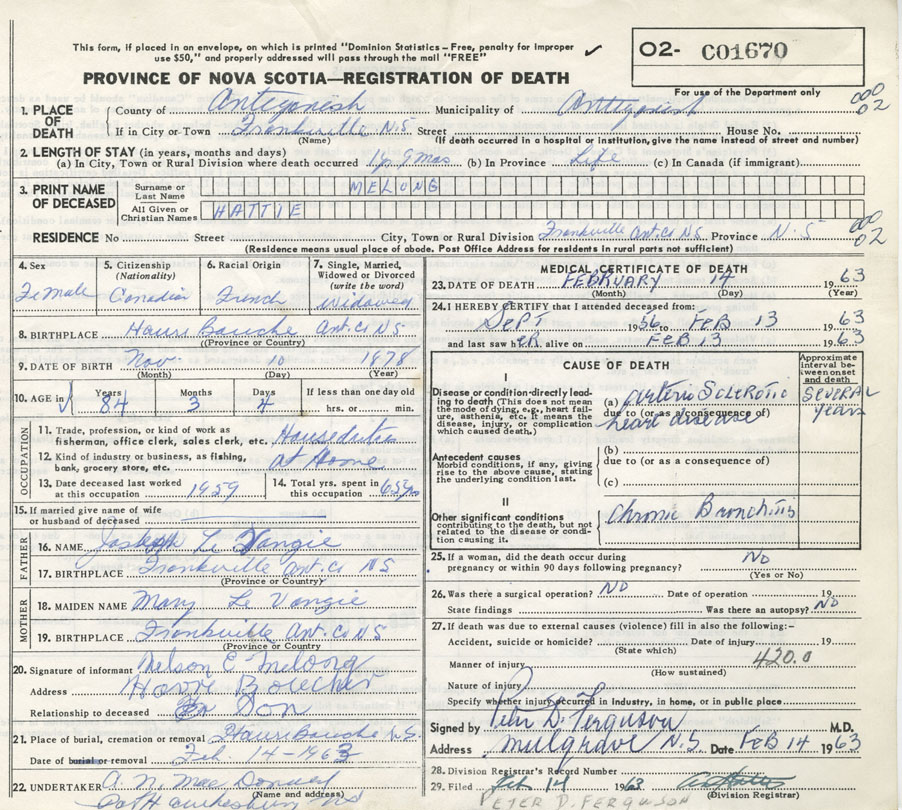 This form, if placed in an envelope, on which is printed "Dominion Statistics – Free, penalty for improper
use $50," and properly addressed will pass through the mail "FREE" ✓
O2- C01670
PROVINCE OF NOVA SCOTIA—REGISTRATION OF DEATH
For use of the Department only
000
02
1. PLACE OF DEATH County of Antigonish Municipality of Antigonish
If in City or Town Frankville N.S. Street House No.
(Name) (If death occurred in a hospital or institution, give the name instead of street and number)
2. LENGTH OF STAY (in years, months and days)
(a) In City, Town or Rural Division where death occurred 1y 9 mos (b) In Province Life (c) In Canada (if immigrant)
3. PRINT NAME OF DECEASED Surname or Last Name MELONG
All Given or Christian Names HATTIE
000
02
RESIDENCE No Street City, Town or Rural Division Frankville Ant. Co NS. Province N.S
(Residence means usual place of abode. Post Office Address for residents in rural parts not sufficient)
4. Sex Female
5. Citizenship (Nationality) Canadian
6. Racial Origin French
7. Single, Married, Widowed or Divorced (write the word) Widowed
8. BIRTHPLACE Havre Bouche Ant. Co NS
(Province or Country)
9. DATE OF BIRTH Nov. 10 1878
(Month) (Day) (Year)
10. AGE in Years 84 Months 3 Days 4 If less than one day old
hrs. or min.
OCCUPATION
11. Trade, profession, or kind of work as
fisherman, office clerk, sales clerk, etc. House duties
12. Kind of industry or business, as fishing,
bank, grocery store, etc. at Home
13. Date deceased last worked
at this occupation 1959
14. Total yrs. spent in
this occupation 65 yrs
15. If married give name of wife
or husband of deceased
FATHER
16. NAME Joseph Le Vangie
17. BIRTHPLACE Frankville Ant. Co NS
(Province or Country)
MOTHER
18. MAIDEN NAME Mary Le Vangie
19. BIRTHPLACE Frankville Ant. Co NS
(Province or Country
20. Signature of informant Nelson E Melong
Address Havre Boucher
Relationship to deceased Son
21. Place of burial, cremation or removal Havre Bouche N.S.
Date of burial or removal Feb. 14 – 1963
22. UNDERTAKER A. N. Mac Donnell
(Name and address)
MEDICAL CERTIFICATE OF DEATH
23. DATE OF DEATH FEBRUARY 14 1963
(Month) (Day) (Year)
24. I HEREBY CERTIFY that I attended deceased from:
SEPT 1956 to FEB 13 1963
and last saw hER alive on FEB 13 1963
CAUSE OF DEATH
Approximate
interval between onset
and death
I
Disease or condition directly leading
to death (This does not mean
the mode of dying, e.g., heart failure,
asthenia, etc. It means the
disease, injury, or complication
which caused death.)
(a) Arterio Sclerotic
due to (or as a consequence of)
heart disease
SEVERAL
years
Antecedent causes
Morbid conditions, if any, giving
rise to the above cause, stating
the underlying condition last.
(b)
due to (or as a consequence of)
(c)
II
Other significant conditions
contributing to the death, but not
related to the disease or condition
causing it.
Chronic Bronchitis
25. If a woman, did the death occur during
pregnancy or within 90 days following pregnancy? NO
(Yes or No)
26. Was there a surgical operation? NO Date of operation 19
State findings Was there an autopsy? NO
27. If death was due to external causes (violence) fill in also the following:–
Accident, suicide or homicide? Date of injury 19
(State which)
Manner of injury 420.0
(How sustained)
Nature of injury
Specify whether injury occurred in Industry, in home, or in public place
Signed by Peter D. Ferguson M.D.
Address Mulgrave N.S. Date FEB 14 1963
28. Division Registrar's Record Number
29. Filed Feb 14 1963
(Division Registrar)
PETER D. FERGUSON